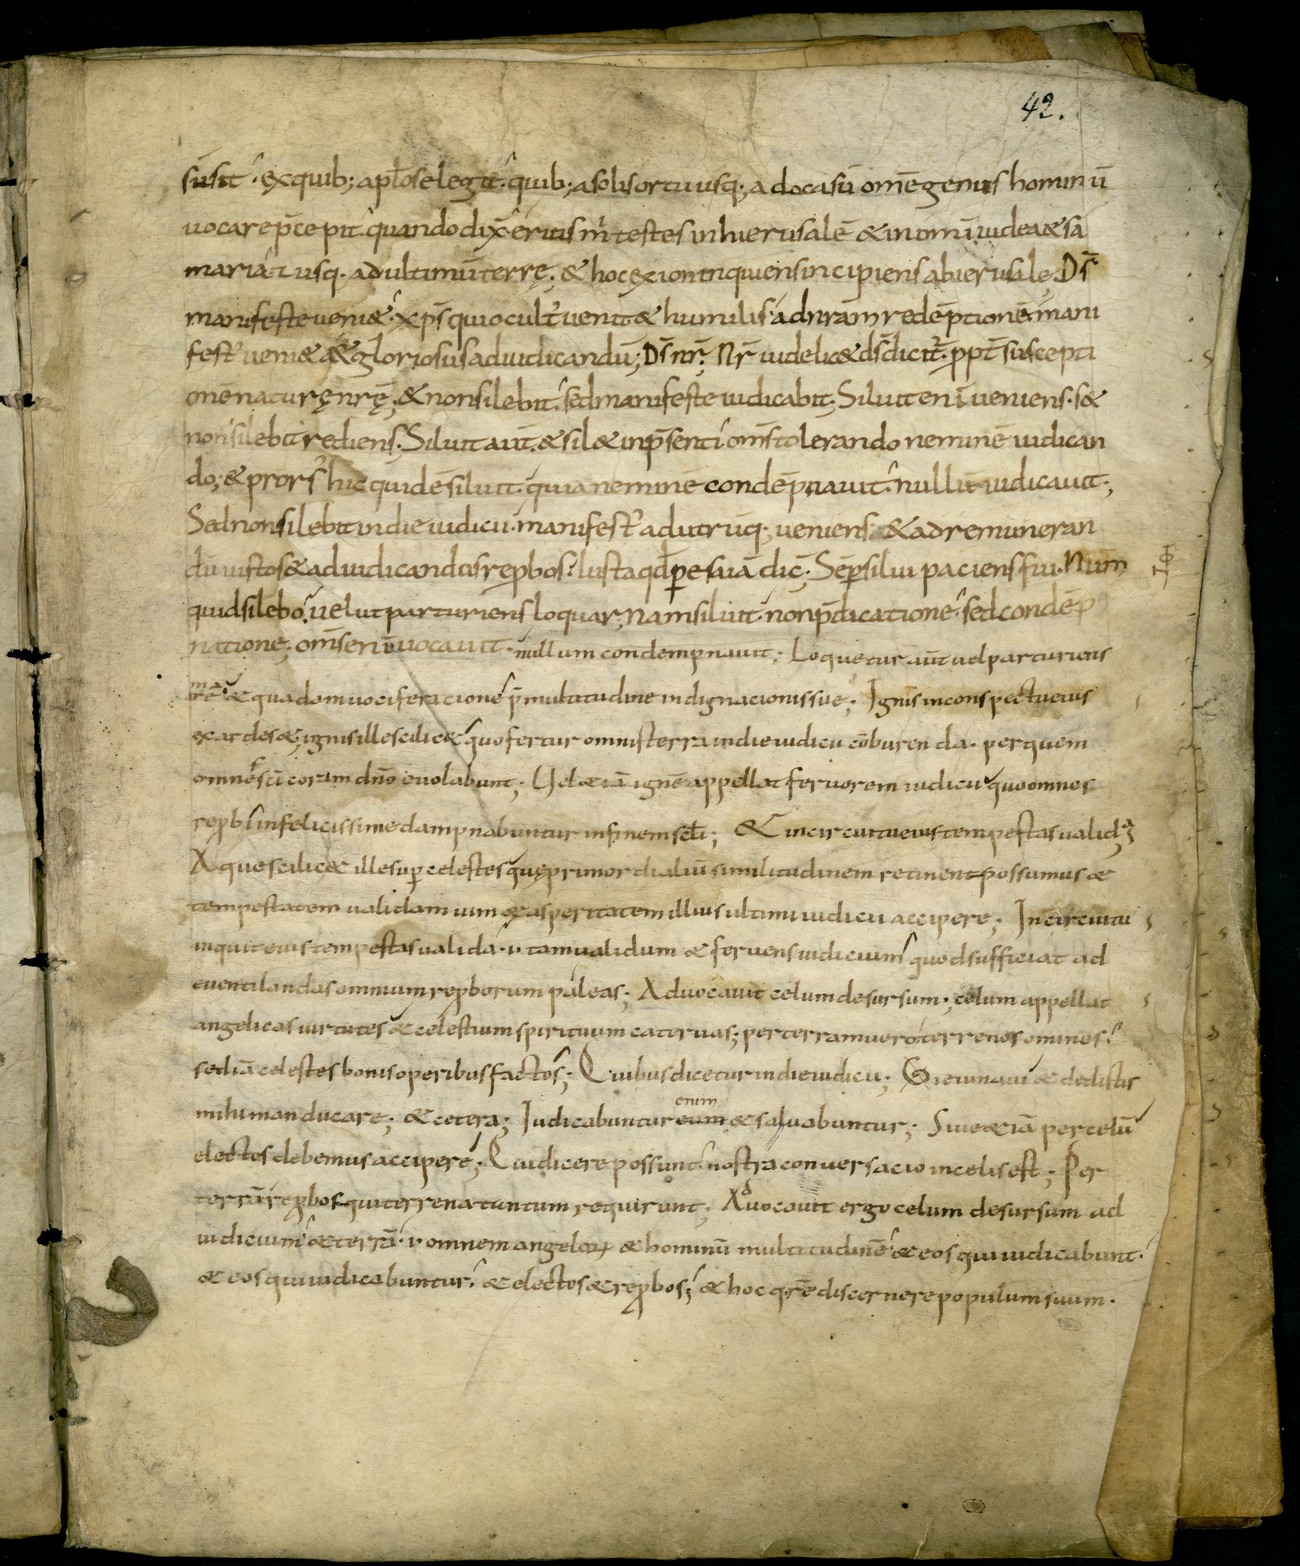 42.
susit. exquib; aptos elegit. quib; asolisortu usq; adocasū omē genus hominū
uocare p̄cepit quando dix̄ eritis m̄ testes inhierusalē & inomī iudea & sa
maria & usq. adultimū terrę; & hoc incipiens abierusale. Ds̄
manifeste ueni&. xp̄s qui ocult uenit & humilis. adnrām redēptionē mani
fest ueni& & gloriosus adiudicandū; Ds̄ nr̄; Nr̄ uidelic& ds̄ dicit. ppt̄ suscepti
onē naturę nrę; & nonsilebit. sed manifeste iudicabit; Siluit enī ueniens. s&
non silebit rediens; Siluit aut. & sil& inp̄senti om̄s tolerando neminē iudican
do; & prors hic quidē siluit. quia neminē condēpnauit. nullū iudicauit;
Sed non silebit indie iudicii. manifest adutrūq; ueniens. & adremuneran
dū iustos & adiudicandos rep̱bos. Iusta qd per esaiā dic̄. Sēp silui paciens fui. Num
quid silebo. uelut parturiens loquar; Nam siluit. non p̄dicatione. sed condēp
natione; om̄s enī uocauit. nullum condempnauit; Loquetur aut uel parturiens
& quadam uociferacione p̄ multitudine indignacionis suę; Ignis inconspectu eius
exardes&; ignis ille scilic& quo fertur omnis terra indie iudicii cōburenda. per quem
omnes sc̄i coram dn̄o euolabunt; Uel etiā ignē appellat feruorem iudicii quo omnes
rep̱bi infelicissime dampnabuntur infinem scl̄i; & incircuitu eius tempestas ualida;
Aque scilic& ille sup celestes quę primordialiū similitudinem retinent possumus &
tempestatem ualidam uim & asperitatem illius ultimi iudicii accipere; Incircuitu
inquit eius tempestas ualida. i. tam ualidum & feruens iudicium quod sufficiat ad
euentilandas omnium rep̱borum paleas; Aduocauit celum desursum; celum appellat
angelicas uirtutes & celestium spirituum cateruas; per terram uero terrenos omines.
sed iā celestes bonis operibus factos; Quibus dicetur indie iudicii; Esuriui & dedistis
mihi manducare; & cetera; Iudicabuntur eum enim & saluabuntur; Siue & iā per celū
electos debemus accipere; Qui dicere possunt. nostra conuersacio incelis est; Per
terrā rep̱bos qui terrena tantum requirunt; Aduocauit ergo celum desursum ad
iudicium & terrā. i. omnem angelorꝝ & hominū multitudinē. & eos qui iudicabunt.
& eos qui iudicabuntur. & electos & rep̱bos; & hoc q̱re discernere populum suum.